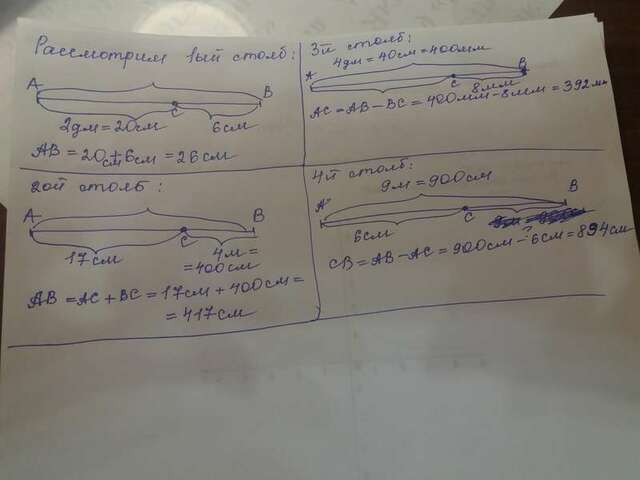 Рассмотрим 1ый столб:
A B
C
2дм = 20см 6см
AB = 20см + 6см = 26см
2ой столб:
A B
C
17см 4м =
= 400см
AB = AC + BC = 17см + 400см =
= 417см
3й столб:
4дм = 40см = 400мм
A B
C 8мм
AC = AB - BC = 400мм - 8мм = 392мм
4й столб:
9м = 900см
A B
C
6см ?
CB = AB - AC = 900см - 6см = 894см